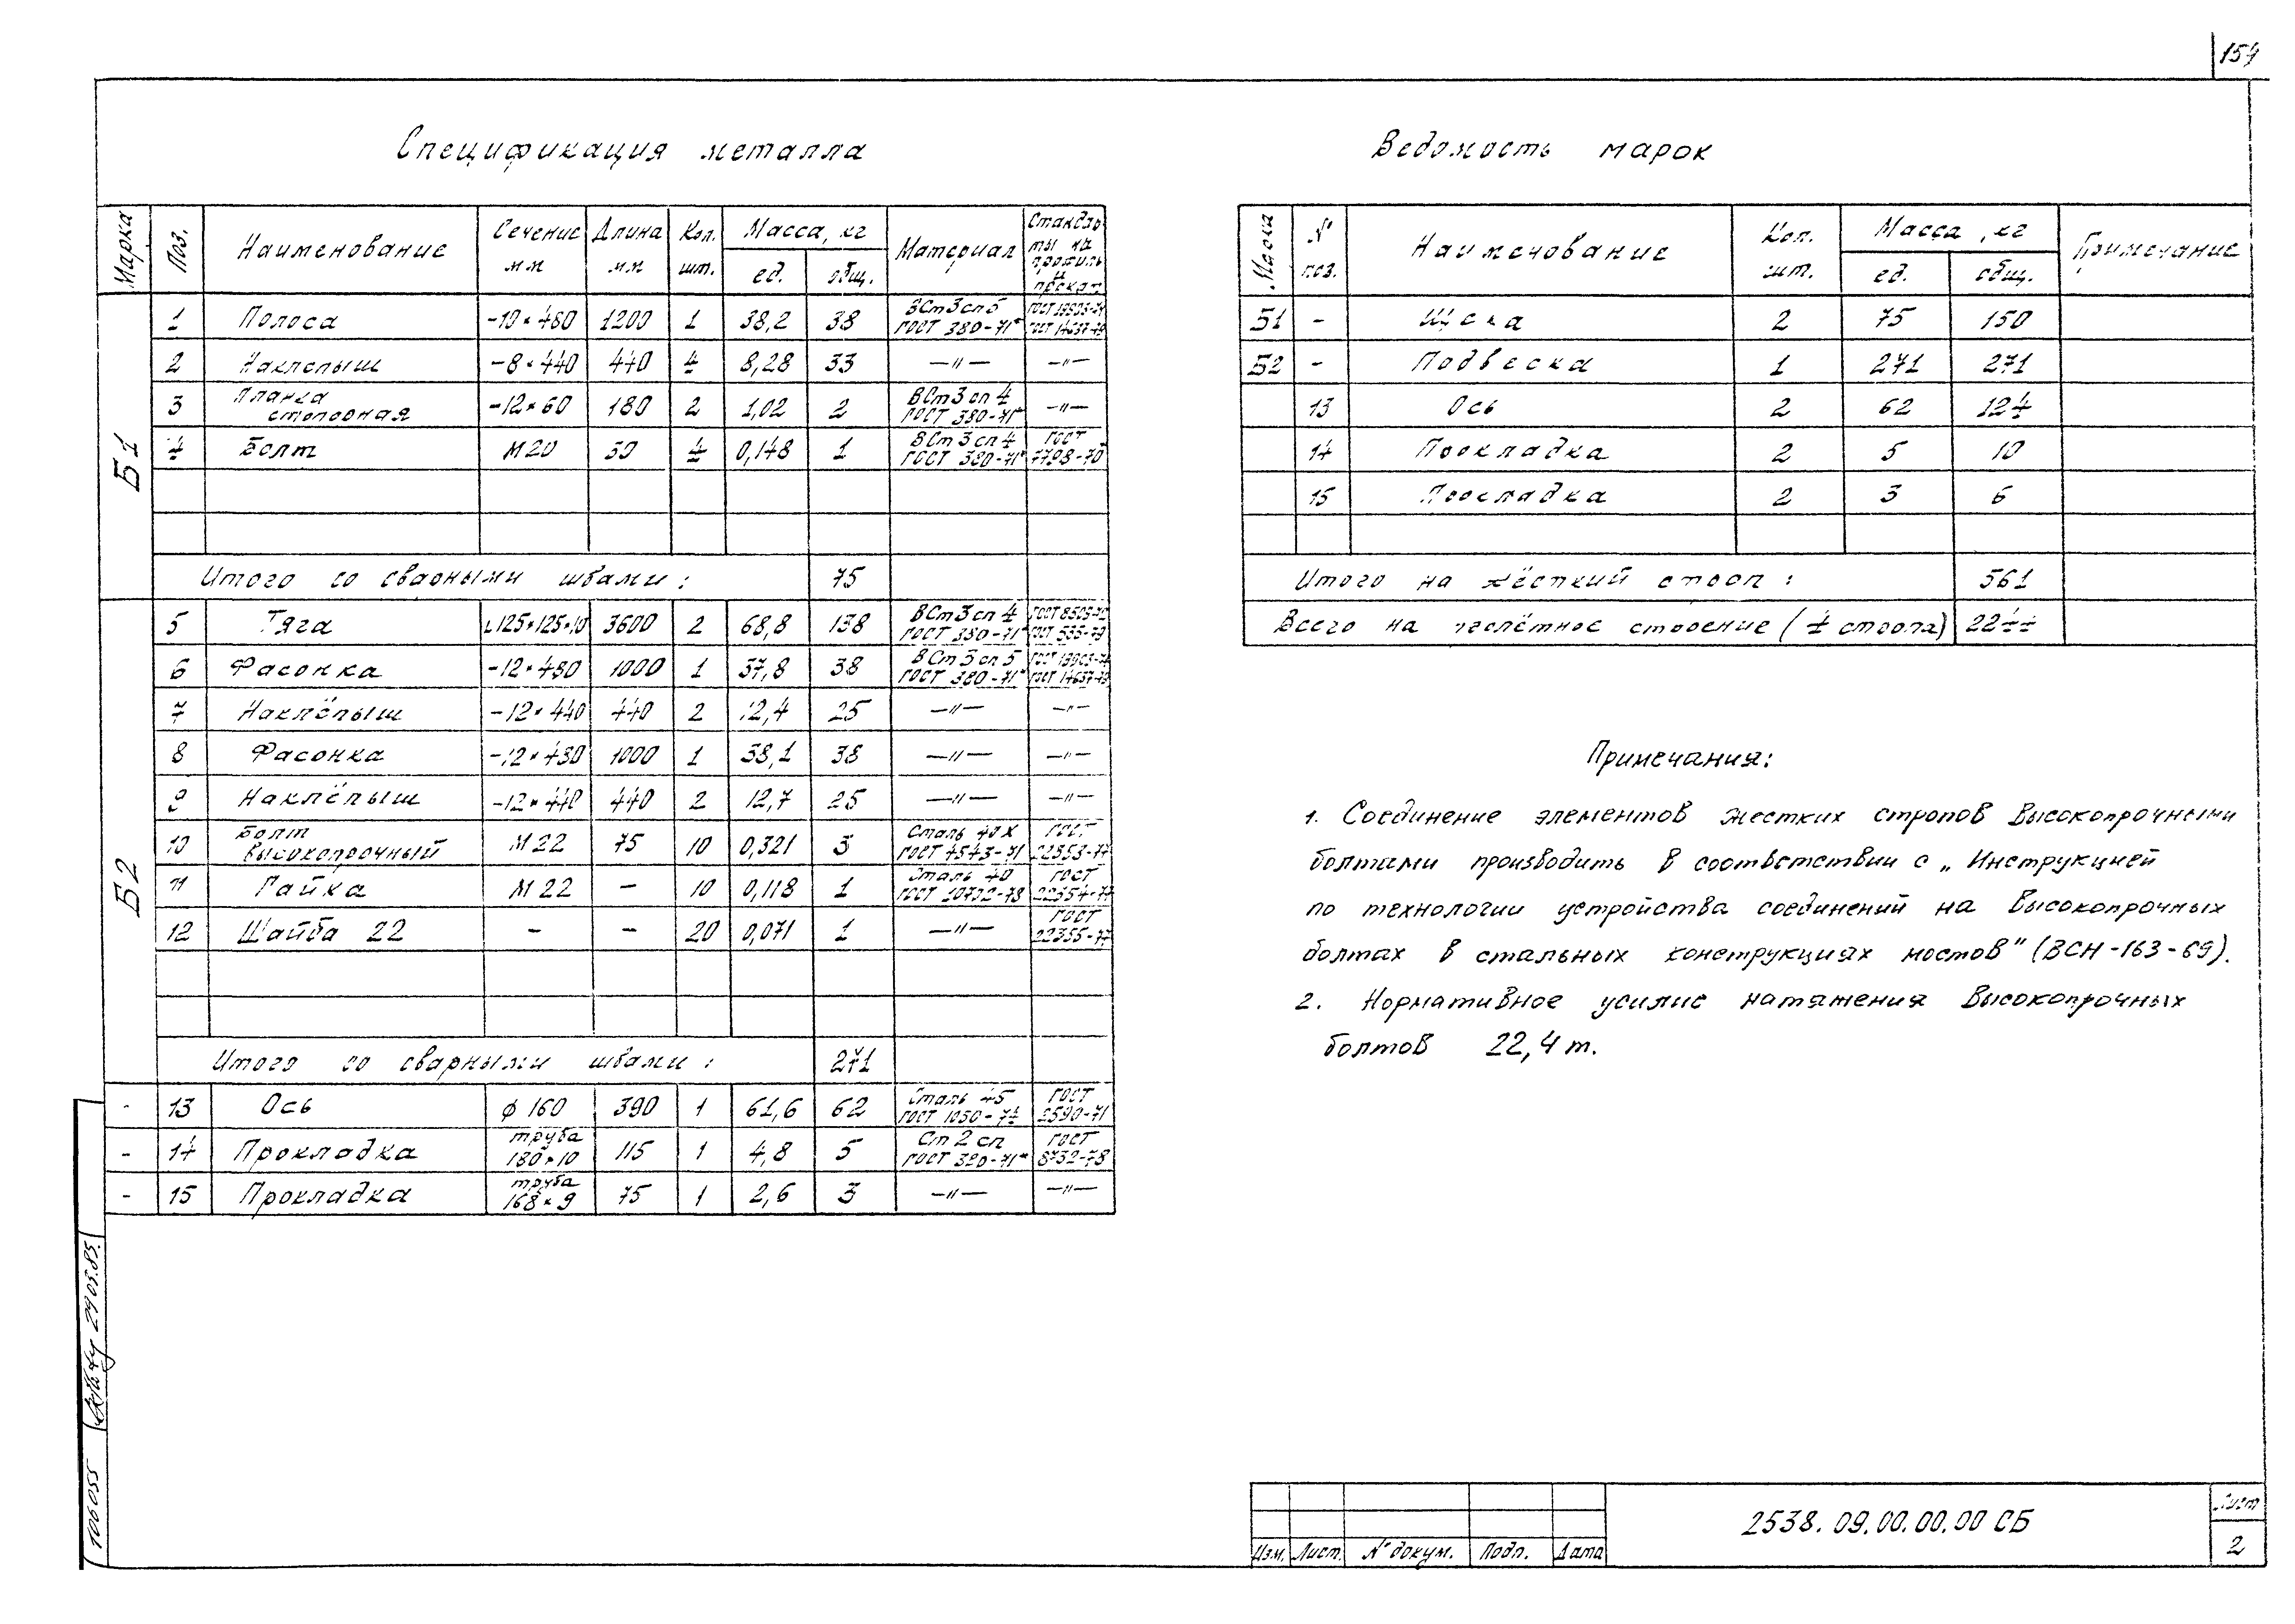 154
Спецификация металла
Марка Поз. Наименование Сечение мм Длина мм Кол. шт. Масса, кг ед. общ. Материал Стандарты на профиль и прокат
Б1
1 Полоса -10×480 1200 1 38,2 38 ВСт3сп5 ГОСТ 380-71*
2 Наклепыш -8×440 440 4 8,28 33 —〃— —〃—
3 Планка стопорная -12×60 180 2 1,02 2 ВСт3сп4 ГОСТ 380-71* —〃—
4 Болт М20 50 4 0,148 1 ВСт3сп4 ГОСТ 380-71* ГОСТ 7798-70
Итого со сварными швами: 75
Б2
5 Тяга L125×125×10 3600 2 68,8 138 ВСт3сп4 ГОСТ 380-71*
6 Фасонка -12×480 1000 1 37,8 38 ВСт3сп5 ГОСТ 380-71*
7 Наклёпыш -12×440 440 2 12,4 25 —〃— —〃—
8 Фасонка -12×480 1000 1 38,1 38 —〃— —〃—
9 Наклёпыш -12×440 440 2 12,7 25 —〃— —〃—
10 Болт высокопрочный М22 75 10 0,321 3 Сталь 40Х ГОСТ 4543-71 ГОСТ 22353-77
11 Гайка М22 – 10 0,118 1 Сталь 40 ГОСТ 10702-78 ГОСТ 22354-77
12 Шайба 22 – – 20 0,071 1 —〃— ГОСТ 22355-77
Итого со сварными швами: 271
- 13 Ось φ160 390 1 61,6 62 Сталь 45 ГОСТ 1050-74 ГОСТ 2590-71
- 14 Прокладка труба 180×10 115 1 4,8 5 Ст2сп ГОСТ 380-71* ГОСТ 8732-78
- 15 Прокладка труба 168×9 75 1 2,6 3 —〃— —〃—
Ведомость марок
Марка № поз. Наименование Кол. шт. Масса, кг ед. общ. Примечание
Б1 - Щека 2 75 150
Б2 - Подвеска 1 271 271
13 Ось 2 62 124
14 Прокладка 2 5 10
15 Прокладка 2 3 6
Итого на жёсткий строп: 561
Всего на пролётное строение (4 стропа) 2244
Примечания:
1. Соединение элементов жестких стропов высокопрочными
болтами производить в соответствии с „Инструкцией
по технологии устройства соединений на высокопрочных
болтах в стальных конструкциях мостов" (ВСН-163-69).
2. Нормативное усилие натяжения высокопрочных
болтов 22,4 т.
106055 29.03.85.
Изм. Лист № докум. Подп. Дата
2538.09.00.00.00 СБ
Лист
2